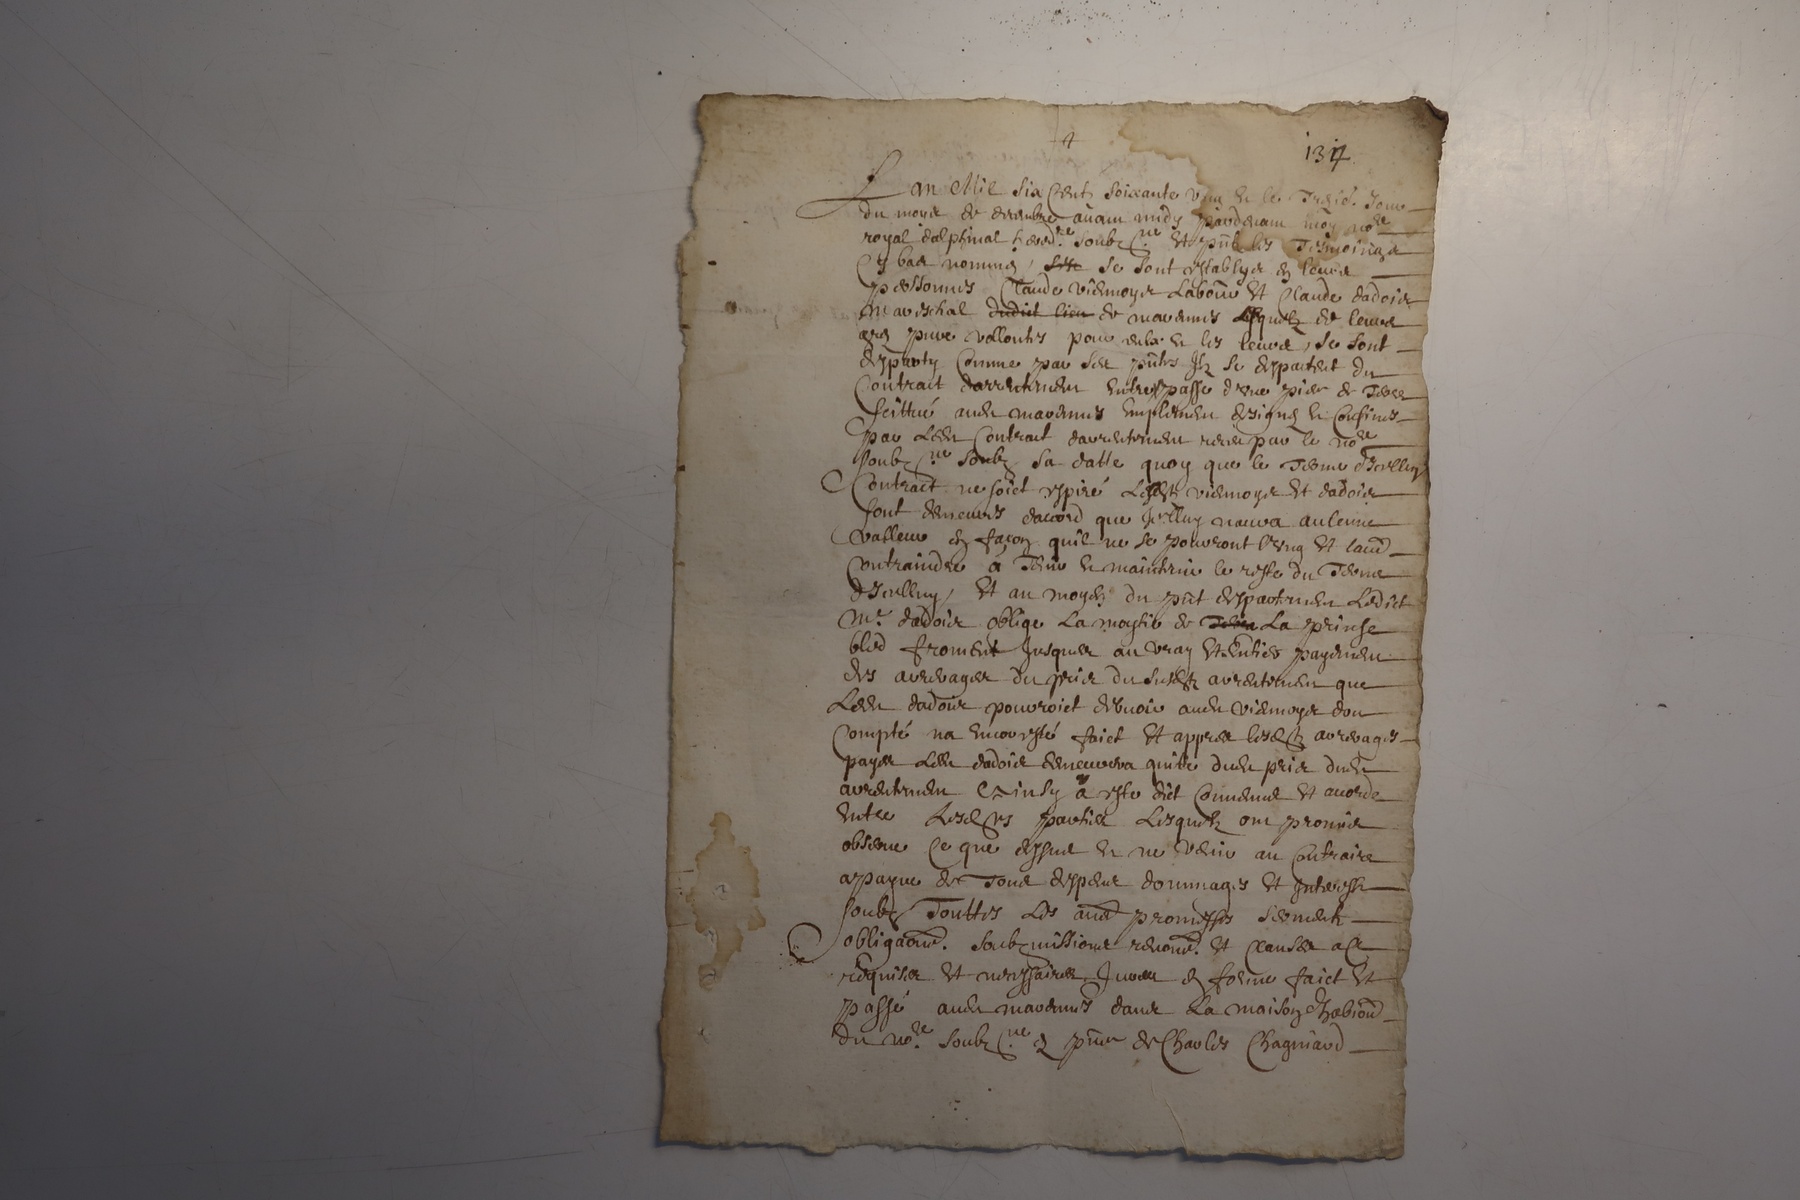 1317
Lan Mil six Cents soixante un et le Jour
du moys de decembre avant midy pardevant moy no.re
royal dalphinal hered.re soubz.ne et pnts les Tesmoings
Cy bas nommes, se sont establys en leurs
personnes Claude viemoys Labour et Claude dadois
mareschal dudict lieu de marennes Lesquelz de leurs
gres pures vollontes pour eulx et les leurs, se sont
desparty Comme par ses pntes Ilz se despartent du
Contract darrentement entre passe dune piece de Terre
scittué aud marennes emplement designe et Confines
par Led Contract darrentement receu par le no.re
soubz.ne soubz sa datte quoy que le Terme dicelluy
Contract ne soict expiré Lesd viemoys et dadois
sont demeures daccord que Icelluy naura aulcune
valleur en façon quil ne se pourront lung et laud
contraindre a Tenir et maintenir le reste du Terme
dIcelluy, Et au moyen du pnt despartement Ledict
M.e dadois oblige La moytié de La prinse
bled froment Jusques au vray et entier payement
des arrerages du pris du susd arrentement que
Led dadois pourroict debvoir aud viemoys dont
Compte na encor esté faict et appres lesd arrerages
payes Led dadois demeurera quitte dud pris dud
arrentement Ainsy a este dict Convenu et accorde
Entre Lesd parties Lesquelz ont promis
observer Ce que dessus et ne venir au Contraire
a payne de Tous despens dommages et Interestz
soubz Touttes Les aud promesses serments
obligaons. soubzmissions renons. et Clauses a Ce
requises et necessaires Juree en forme faict et
passé aud marennes dans La maison dhabion
du no.re soubz.ne en pnce de Charles Chagniard